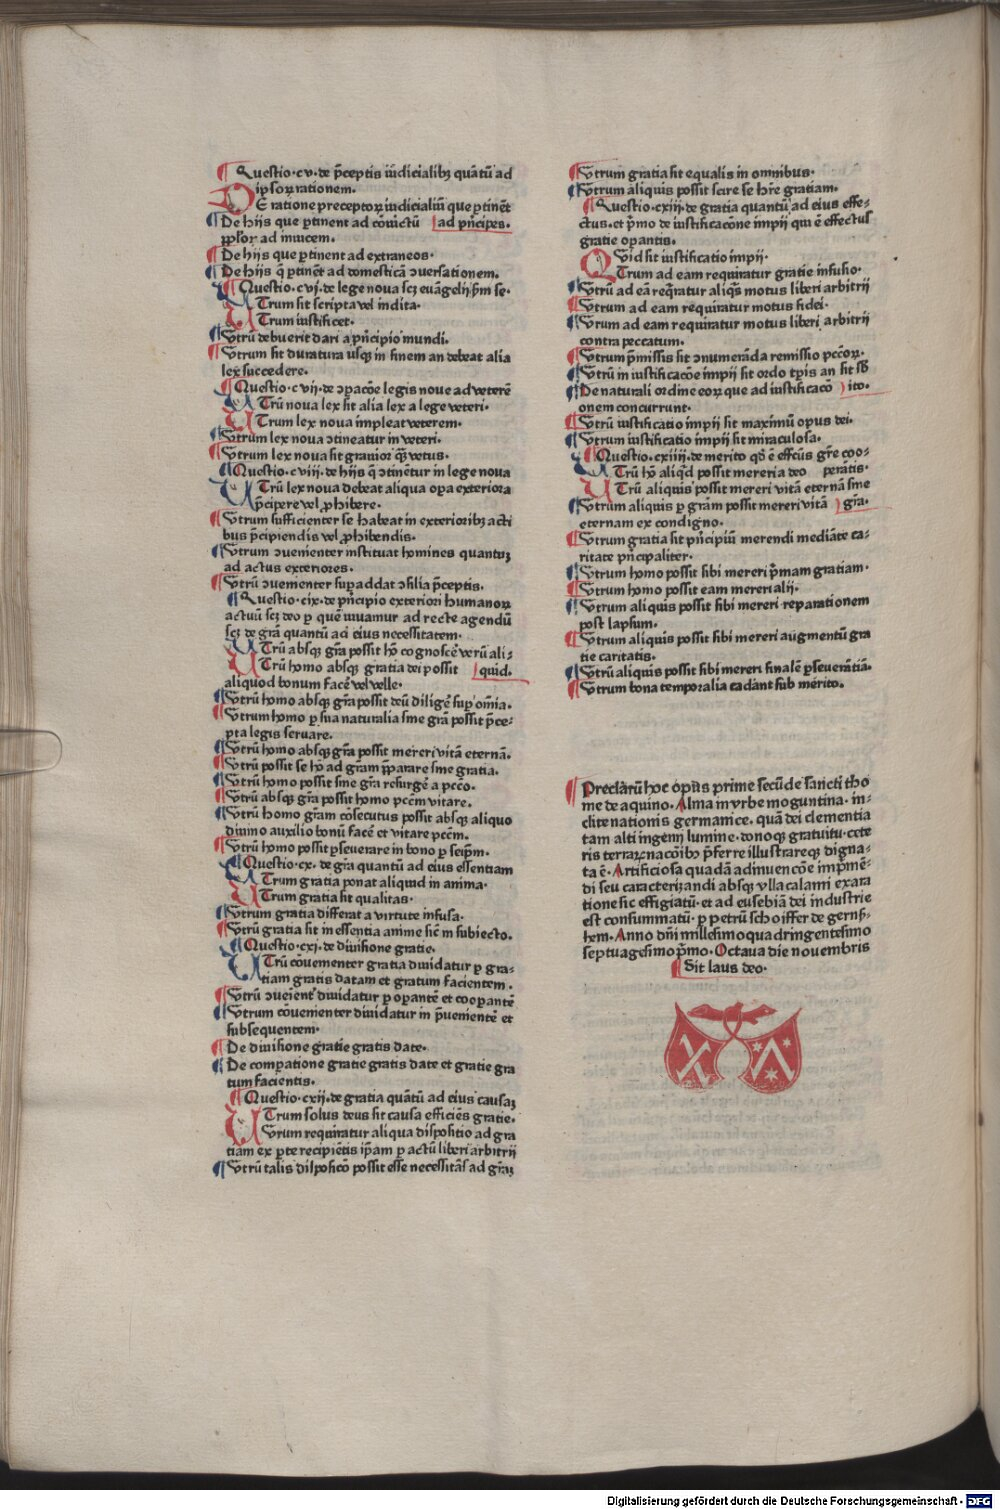 Questio·cv·de p̄ceptis iudicialibꝫ quātū ad
ipsoꝝ rationem.
DE ratione preceptoꝝ iudicialiū que ꝑtinēt
De hijs que ꝑtinent ad cōuictū ad pͥncipes.
ppl'oꝝ ad inuicem.
De hijs que ꝑtinent ad extraneos·
De hijs q̄ ꝑtinēt ad domesticā ↄuersationem.
Questio·cvj·de lege noua scꝫ euāgelij ẜm se·
UTrum sit scripta vel indita·
UTrum iustificet·
Vtrū debuerit dari a pͥncipio mundi.
Vtrum sit duratura vsqꝫ in finem an debeat alia
lex succedere.
Questio·cvij·de ↄꝑacōe legis noue ad veterē
UTrū noua lex sit alia lex a lege veteri·
UTrum lex noua impleat veterem·
Vtrum lex noua ↄtineatur in veteri·
Vtrum lex noua sit grauior qꝫ vetus·
Questio·cviij·de hijs q̄ ↄtinētur in lege noua
UTrū lex noua debeat aliqua oꝑa exteriora
p̄cipere vel ꝓhibere·
Vtrum sufficienter se habeat in exterioribꝫ acti
bus p̄cipiendis vel ꝓhibendis·
Vtrum ↄuenienter instituat homines quantuꝫ
ad actus exteriores·
Vtrū ↄuenienter suꝑaddat ↄsilia p̄ceptis.
Questio·cix·de pͥncipio exteriori humanoꝝ
actuū scꝫ deo ꝑ quē iuuamur ad recte agendū
scꝫ de gr̄a quantū ad eius necessitatem·
UTrū absqꝫ gr̄a possit hō cognoscē verū ali-
UTrū homo absqꝫ gratia dei possit quid.
aliquod bonum facē vel velle·
Vtrū homo absqꝫ gr̄a possit deū diligē suꝑ om̄ia.
Vtrum homo ꝑ sua naturalia sine gr̄a possit p̄ce-
pta legis seruare.
Vtrū homo absqꝫ gr̄a possit mereri vitā eternā.
Vtrū possit se hō ad gr̄am p̄parare sine gratia.
Vtrū homo possit sine gr̄a resurgē a pccō.
Vtrū absqꝫ gr̄a possit homo pccm̄ vitare.
Vtrū homo gr̄am cōsecutus possit absqꝫ aliquo
diuino auxilio bonū facē et vitare pccm̄.
Vtrū homo possit ꝑseuerare in bono ꝑ seip̄m·
Questio·cx·de gr̄a quantū ad eius essentiam
UTrum gratia ponat aliquid in anima·
UTrum gratia sit qualitas·
Vtrum gratia differat a virtute infusa·
Vtrū gratia sit in essentia anime sic̄ in subiecto.
Questio·cxj·de diuisione gratie.
UTrū cōuenienter gratia diuidatur ꝑ gra-
tiam gratis datam et gratum facientem·
Vtrū ↄueient' diuidatur ꝑ oꝑantē et cooꝑantē
Vtrum cōuenienter diuidatur in p̄uenientē et
subsequentem·
De diuisione gratie gratis date·
De comꝑatione gratie gratis date et gratie gra
tum facientis·
Questio·cxij·de gratia quātū ad eius causaꝫ
UTrum solus deus sit causa efficiēs gratie·
Vtrum requiratur aliqua dispositio ad gra
tiam ex ꝑte recipiētis ip̄am ꝑ actū liberi arbitrij
Vtrū talis disposicō possit esse necessitās ad gr̄aꝫ
Vtrum gratia sit equalis in omnibus·
Vtrum aliquis possit scire se hr̄e gratiam.
Questio·cxiij·de gratia quantū ad eius effe-
ctus·et pͥmo de iustificacōne impij qui ē effectus
gratie oꝑantis.
QVid sit iustificatio impij·
UTrum ad eam requiratur gratie infusio·
Vtrū ad eā reqͥratur aliqͥs motus liberi arbitrij
Vtrum ad eam requiratur motus fidei·
Vtrum ad eam requiratur motus liberi arbitrij
contra peccatum.
Vtrum p̄missis sit ↄnumerāda remissio pccōꝝ.
Vtrū in iustificacōe impij sit ordo tꝑis an sit sb̄
De naturali ordine eoꝝ que ad iustificacō ito.
onem concurrunt·
Vtrū iustificatio impij sit maximū opus dei·
Vtrum iustificatio impij sit miraculosa·
Questio·cxiiij·de merito qd̄ ē effcūs gr̄e coo-
UTrū hō aliqͥd possit mereri a deo perātis·
UTrū aliquis possit mereri vitā eternā sine
Vtrum aliquis ꝑ gr̄am possit mereri vitā gr̄a.
eternam ex condigno·
Vtrum gratia sit pͥncipiū merendi mediāte ca-
ritate pͥncipaliter·
Vtrum homo possit sibi mereri pͥmam gratiam·
Vtrum homo possit eam mereri alij·
Vtrum aliquis possit sibi mereri reparationem
post lapsum·
Vtrum aliquis possit sibi mereri augmentū gra
tie caritatis·
Vtrū aliquis possit sibi mereri finalē ꝑseuerātiā·
Vtrum bona temporalia cadant sub merito.
Preclarū hoc opus prime secūde sancti tho
me de aquino·Alma in vrbe moguntina·in-
clite nationis germanice·quā dei clementia
tam alti ingenij lumine·donoqꝫ gratuitu·cete
ris terraꝝ nacōibꝫ p̄ferre illustrareqꝫ digna-
ta ē·Artificiosa quadā adinuencōe imp̄mē-
di seu caracterizandi absqꝫ vlla calami exara
tione sic effigiatū·et ad eusebiā dei industrie
est consummatū·ꝑ petrū schoiffer de gernß-
hem·Anno dn̄i millesimo quadringentesimo
septuagesimo pͥmo·Octaua die nouembris
Sit laus deo·
Digitalisierung gefördert durch die Deutsche Forschungsgemeinschaft - DFG